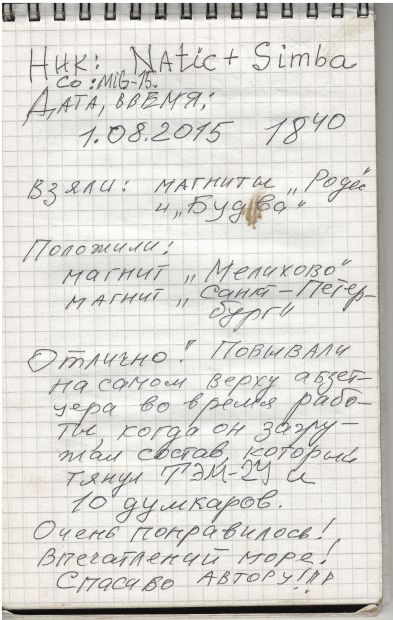 Ник: Natic + Simba
со: MiG-15.
Дата, время:
1.08.2015 18 40
Взяли: магниты „Родос"
и „Будва"
Положили:
магнит „Мелихово"
магнит „Санкт-Петер-
бург"
Отлично! Побывали
на самом верху абзет-
цера во время рабо-
ты, когда он загру-
жал состав, который
тянул ТЭМ-2У и
10 думкаров.
Очень понравилось!
Впечатлений море!
Спасибо автору!!!